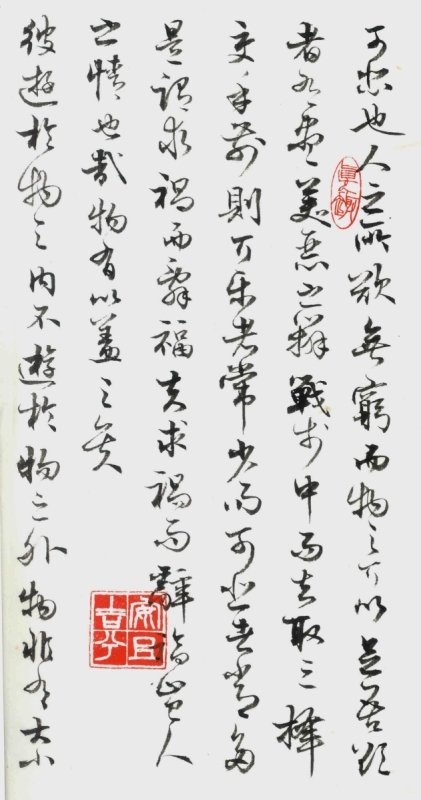 可悲也人之所欲無窮而物之可以足吾欲
者有盡美惡之辨戰乎中而去取之擇
交乎前則可樂者常少而可悲者常多
是謂求禍而辭福夫求禍而辭福豈人
之情也哉物有以蓋之矣
彼遊於物之內不遊於物之外物非有大小
安且吉兮